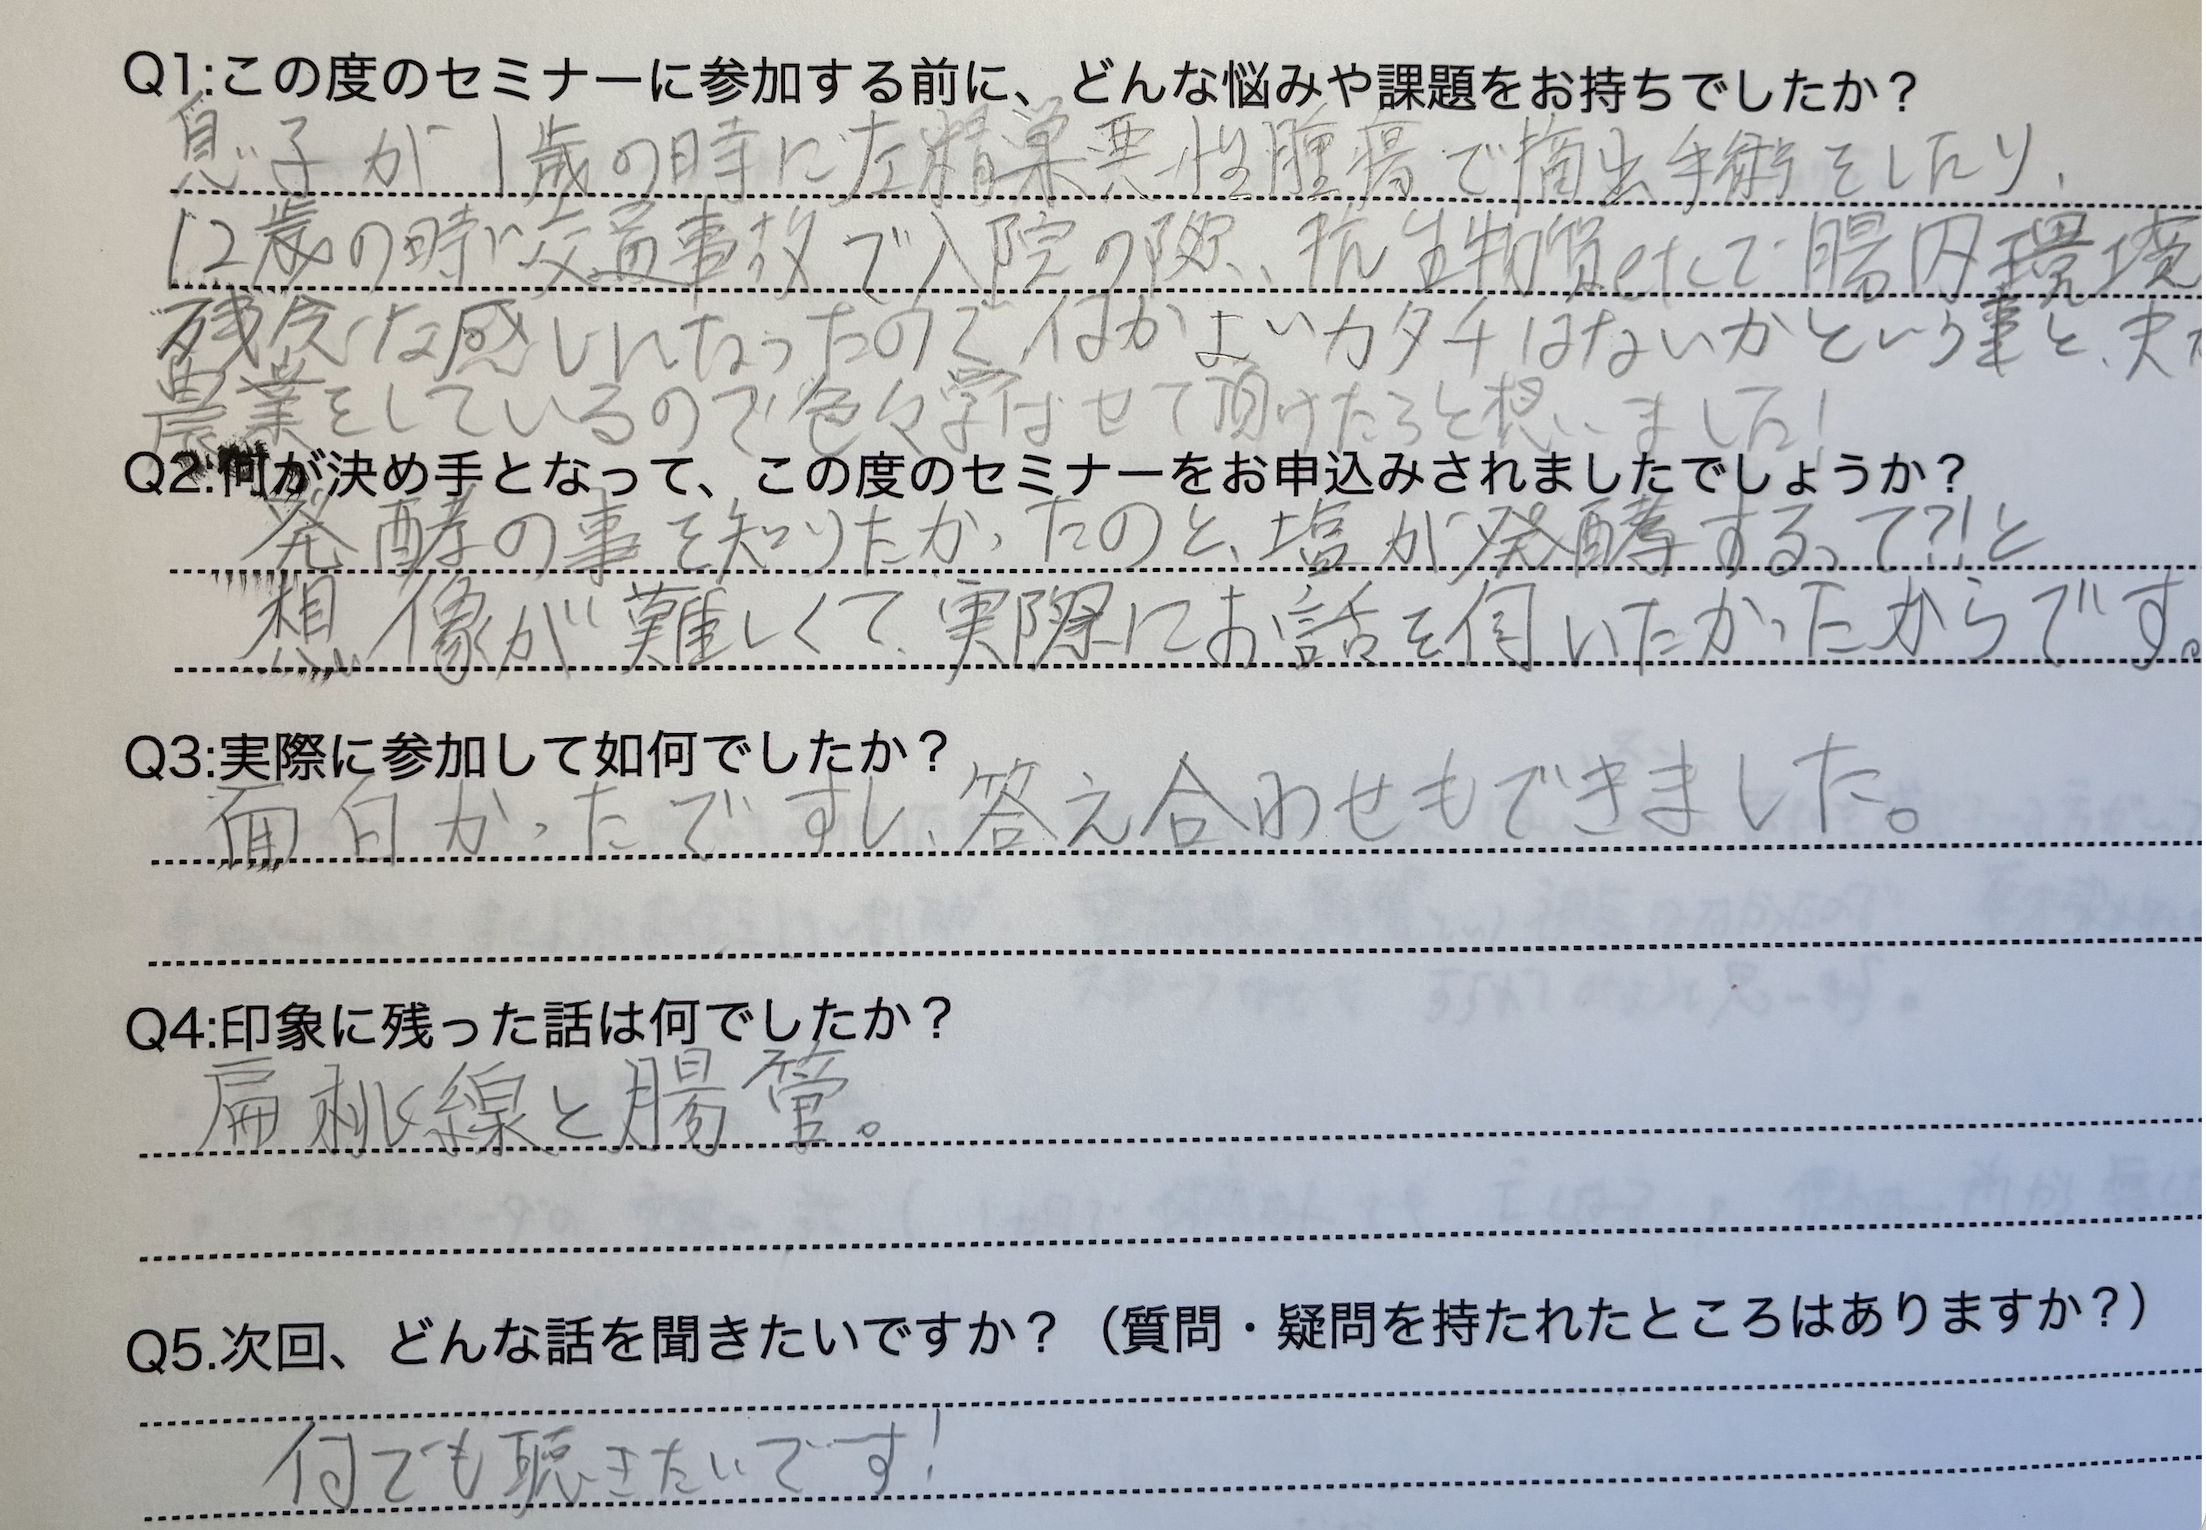 Q1:この度のセミナーに参加する前に、どんな悩みや課題をお持ちでしたか？
息子が1歳の時に左精巣悪性腫瘍で摘出手術をしたり、
12歳の時に交通事故で入院の際、抗生物質etcで腸内環境
残念な感じになったので何かよいカタチはないかという事と、夫
農業をしているので色々学ばせて頂けたらと想いました！
Q2.何が決め手となって、この度のセミナーをお申込みされましたでしょうか？
発酵の事を知りたかったのと、塩が発酵するって？！と
想像が難しくて、実際にお話を伺いたかったからです。
Q3:実際に参加して如何でしたか？
面白かったですし、答え合わせもできました。
Q4:印象に残った話は何でしたか？
扁桃線と腸管。
Q5.次回、どんな話を聞きたいですか？（質問・疑問を持たれたところはありますか？）
何でも聴きたいです！